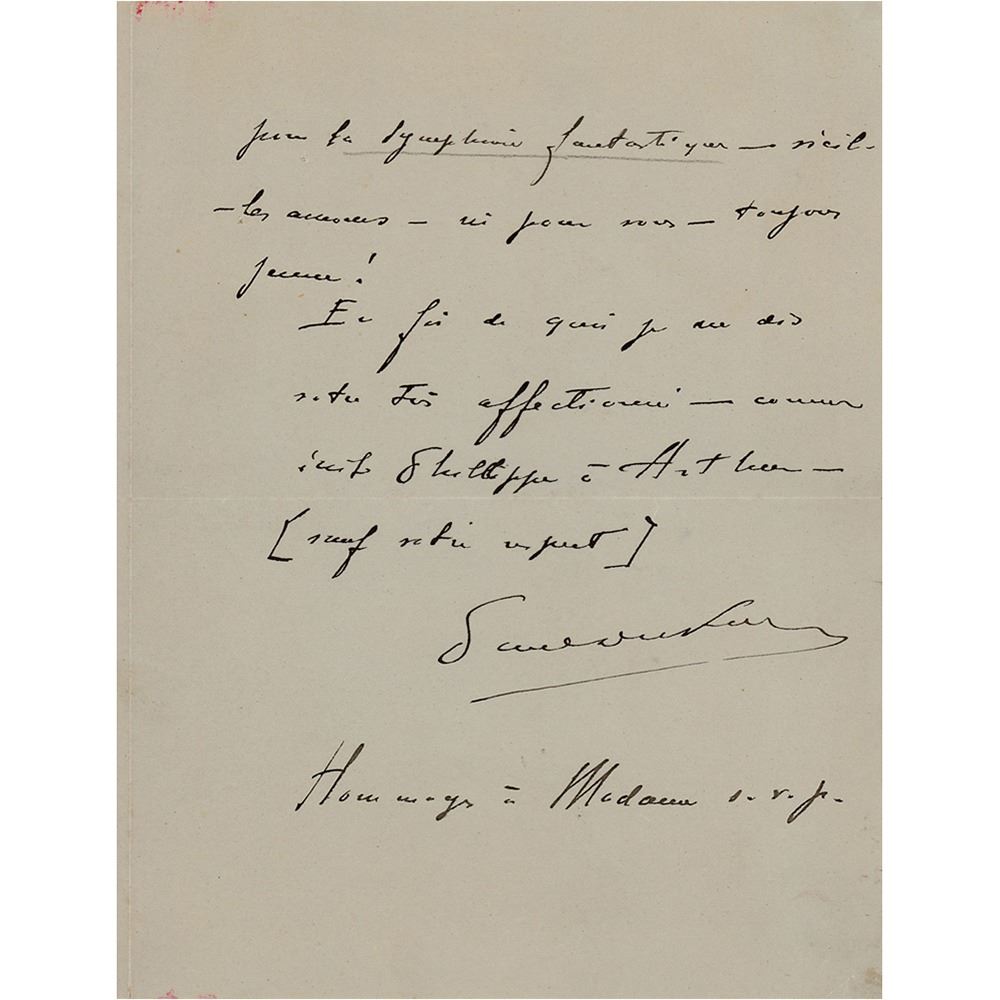 pour la Symphonie fantastique — vieil-
- les amours — ni pour vous — toujours
jeune !
En foi de quoi je me dis
votre très affectionné — comme
écrit Philippe à Arthur —
[sauf votre respect]
Hommages à Madame s. v. p.